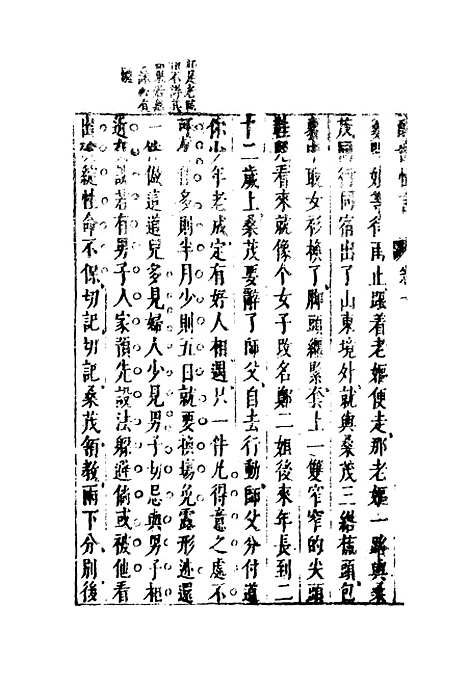 醒世恆言　卷十
桑茂好等得雨止跟着老嫗便走那老嫗一路與桑
茂同行同宿出了山東境外就與桑茂三綹梳頭包
裹中取女衫換了脚頭纏緊套上一雙窄窄的尖頭
鞋兒看來就像个女子改名鄭二姐後來年長到二
十二歲上桑茂要辭了師父自去行動師父分付道
你少年老成定有好人相遇只一件凡得意之處不
可久住多則半月少則五日就要換塲免露形迹還
一件做這道兒多見婦人少見男子切忌與男子相
近交談若有男子人家預先設法躱避倘或被他看
出破綻性命不保切記切記桑茂領教兩下分別後